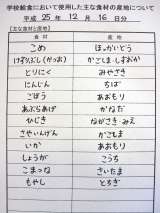 学校給食において使用した主な食材の産地について
平成 25 年 12 月 16 日分
【主な食材と産地】
食材 産地
こめ ほっかいどう
けずりぶし(かつお) かごしま・しずおか
とりにく みやざき
にんじん ちば
ごぼう あおもり
あぶらあげ かなだ
ひじき ながさき・みえ
さやいんげん かごしま
いか あおもり
しょうが こうち
こまつな さいたま
もやし とちぎ